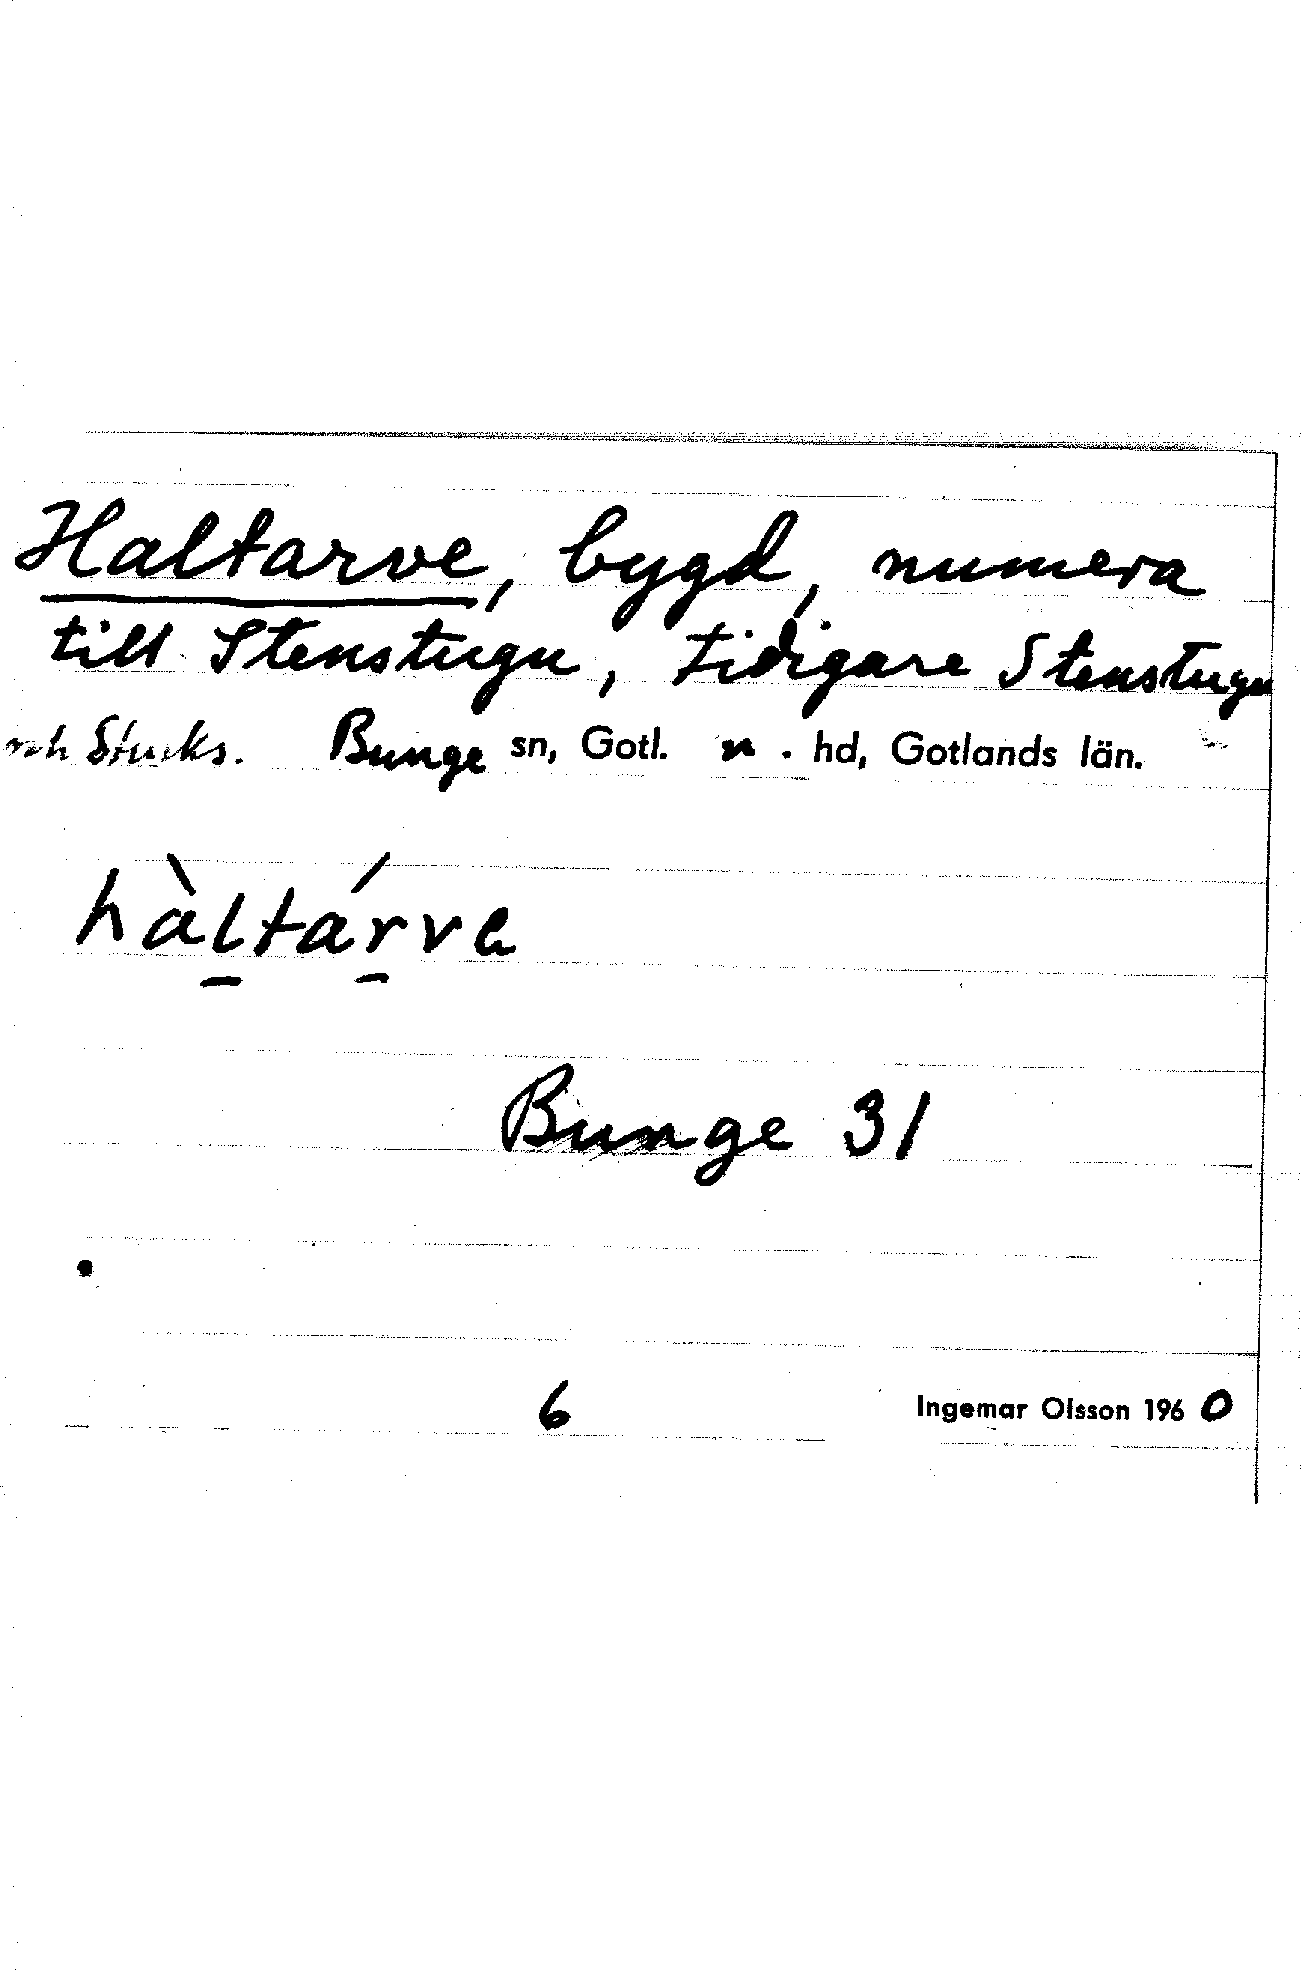 Haltarve, bygd, numera
till Stenstugu, tidigare Stenstugu
och Stucks. Bunge sn, Gotl. n. hd, Gotlands län.
hàl̠tár̠va
Bunge 31
6 Ingemar Olsson 1960